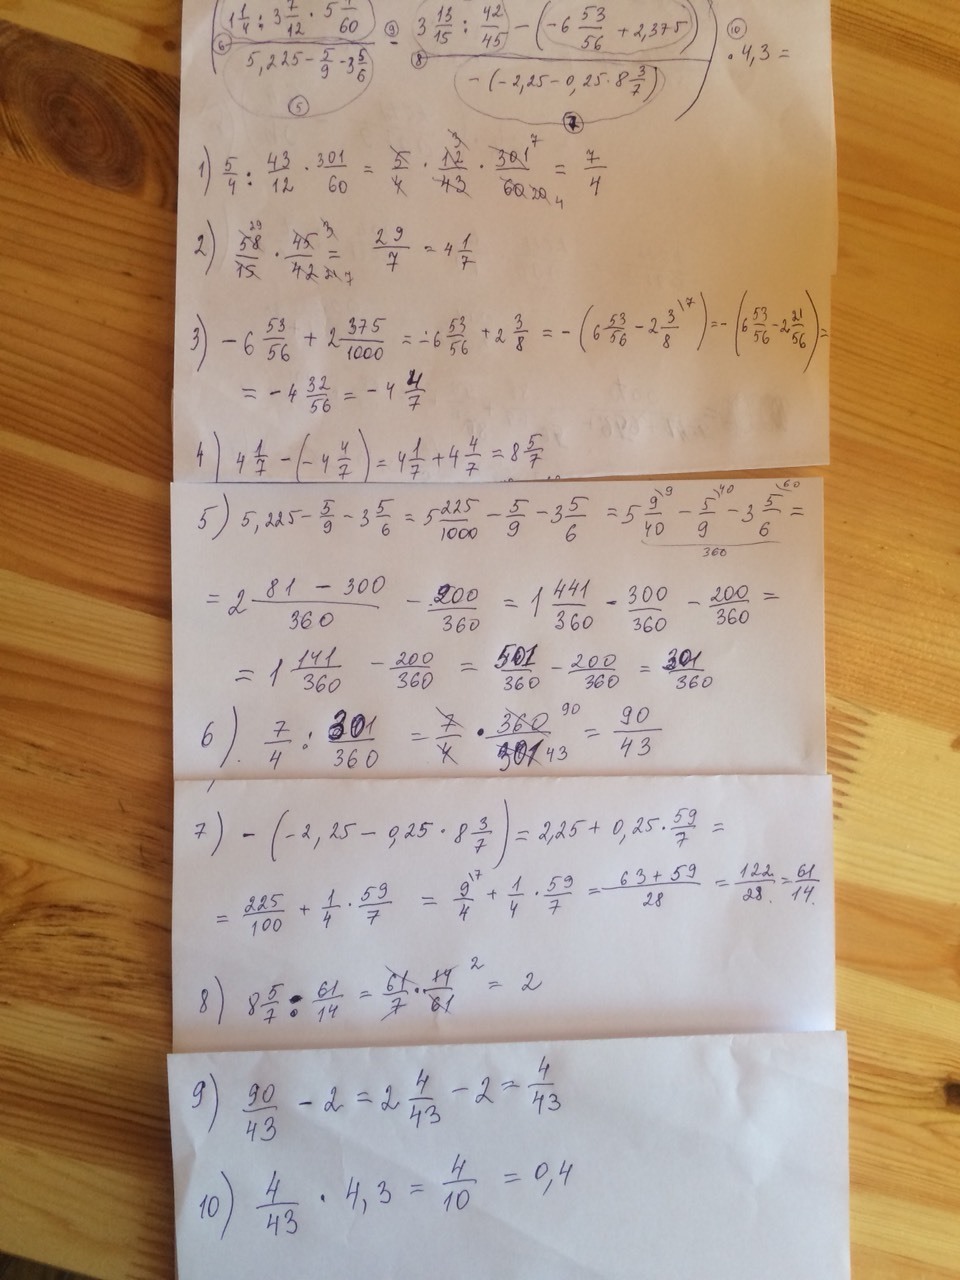 1 1/4 : 3 7/12 · 5 1/60 - 3 13/15 : 42/45 - (-6 53/56 + 2,375)
5,225 - 5/9 - 3 5/6   - (-2,25 - 0,25 · 8 3/7) · 4,3 =
1) 5/4 : 43/12 · 301/60 = 5/4 · 12/43 · 301/60 = 7/4
2) 58/15 · 45/42 = 29/7 = 4 1/7
3) -6 53/56 + 2 375/1000 = -6 53/56 + 2 3/8 = -(6 53/56 - 2 3/8) = -(6 53/56 - 2 21/56) =
= -4 32/56 = -4 4/7
4) 4 1/7 - (-4 4/7) = 4 1/7 + 4 4/7 = 8 5/7
5) 5,225 - 5/9 - 3 5/6 = 5 225/1000 - 5/9 - 3 5/6 = 5 9/40 - 5/9 - 3 5/6 =
360
= 2 81 - 300/360 - 200/360 = 1 441/360 - 300/360 - 200/360 =
= 1 141/360 - 200/360 = 501/360 - 200/360 = 301/360
6). 7/4 : 301/360 = 7/4 · 360/301 = 90/43
7) -(-2,25 - 0,25 · 8 3/7) = 2,25 + 0,25 · 59/7 =
= 225/100 + 1/4 · 59/7 = 9/4 + 1/4 · 59/7 = 63+59/28 = 122/28 = 61/14
8) 8 5/7 : 61/14 = 61/7 · 14/61 = 2
9) 90/43 - 2 = 2 4/43 - 2 = 4/43
10) 4/43 · 4,3 = 4/10 = 0,4